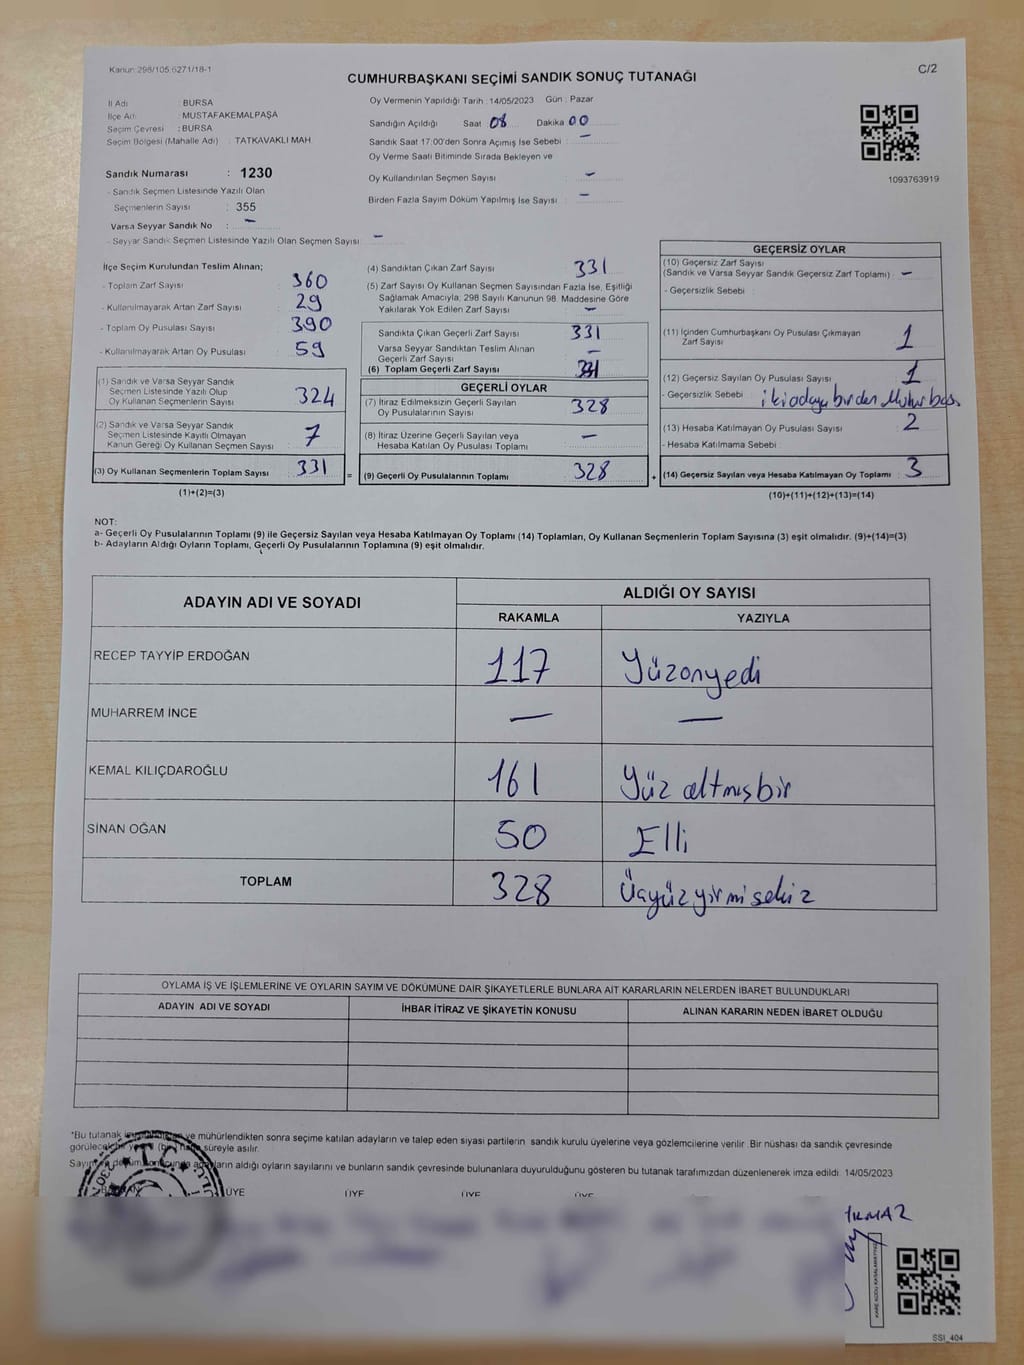 Kanun: 298/105 6271/18-1
C/2
CUMHURBAŞKANI SEÇİMİ SANDIK SONUÇ TUTANAĞI
İl Adı : BURSA
İlçe Adı : MUSTAFAKEMALPAŞA
Seçim Çevresi : BURSA
Seçim Bölgesi (Mahalle Adı) : TATKAVAKLI MAH
Sandık Numarası : 1230
- Sandık Seçmen Listesinde Yazılı Olan
Seçmenlerin Sayısı : 355
Varsa Seyyar Sandık No : –
- Seyyar Sandık Seçmen Listesinde Yazılı Olan Seçmen Sayısı –
Oy Vermenin Yapıldığı Tarih : 14/05/2023 Gün : Pazar
Sandığın Açıldığı Saat 08 Dakika 00
Sandık Saat 17:00'den Sonra Açımış İse Sebebi : –
Oy Verme Saati Bitiminde Sırada Bekleyen ve
Oy Kullandırılan Seçmen Sayısı –
Birden Fazla Sayım Döküm Yapılmış İse Sayısı –
1093763919
İlçe Seçim Kurulundan Teslim Alınan;
- Toplam Zarf Sayısı 360
- Kullanılmayarak Artan Zarf Sayısı 29
- Toplam Oy Pusulası Sayısı 390
- Kullanılmayarak Artan Oy Pusulası 59
(1) Sandık ve Varsa Seyyar Sandık
Seçmen Listesinde Yazılı Olup
Oy Kullanan Seçmenlerin Sayısı 324
(2) Sandık ve Varsa Seyyar Sandık
Seçmen Listesinde Kayıtlı Olmayan
Kanun Gereği Oy Kullanan Seçmen Sayısı 7
(3) Oy Kullanan Seçmenlerin Toplam Sayısı 331
(1)+(2)=(3)
=
(4) Sandıktan Çıkan Zarf Sayısı 331
(5) Zarf Sayısı Oy Kullanan Seçmen Sayısından Fazla İse, Eşitliği
Sağlamak Amacıyla, 298 Sayılı Kanunun 98. Maddesine Göre
Yakılarak Yok Edilen Zarf Sayısı –
Sandıkta Çıkan Geçerli Zarf Sayısı 331
Varsa Seyyar Sandıktan Teslim Alınan
Geçerli Zarf Sayısı –
(6) Toplam Geçerli Zarf Sayısı 331
GEÇERLİ OYLAR
(7) İtiraz Edilmeksizin Geçerli Sayılan
Oy Pusulalarının Sayısı 328
(8) İtiraz Üzerine Geçerli Sayılan veya
Hesaba Katılan Oy Pusulası Toplamı –
(9) Geçerli Oy Pusulalarının Toplamı 328
+
GEÇERSİZ OYLAR
(10) Geçersiz Zarf Sayısı
(Sandık ve Varsa Seyyar Sandık Geçersiz Zarf Toplamı) : –
- Geçersizlik Sebebi :
(11) İçinden Cumhurbaşkanı Oy Pusulası Çıkmayan
Zarf Sayısı 1
(12) Geçersiz Sayılan Oy Pusulası Sayısı : 1
- Geçersizlik Sebebi : iki adaya birden Mühür bas.
(13) Hesaba Katılmayan Oy Pusulası Sayısı : 2
- Hesaba Katılmama Sebebi :
(14) Geçersiz Sayılan veya Hesaba Katılmayan Oy Toplamı : 3
(10)+(11)+(12)+(13)=(14)
NOT:
a- Geçerli Oy Pusulalarının Toplamı (9) ile Geçersiz Sayılan veya Hesaba Katılmayan Oy Toplamı (14) Toplamları, Oy Kullanan Seçmenlerin Toplam Sayısına (3) eşit olmalıdır. (9)+(14)=(3)
b- Adayların Aldığı Oyların Toplamı, Geçerli Oy Pusulalarının Toplamına (9) eşit olmalıdır.
ADAYIN ADI VE SOYADI
ALDIĞI OY SAYISI
RAKAMLA YAZIYLA
RECEP TAYYİP ERDOĞAN 117 Yüzonyedi
MUHARREM İNCE – –
KEMAL KILIÇDAROĞLU 161 Yüz altmışbir
SİNAN OĞAN 50 Elli
TOPLAM 328 Üçyüzyirmisekiz
OYLAMA İŞ VE İŞLEMLERİNE VE OYLARIN SAYIM VE DÖKÜMÜNE DAİR ŞİKAYETLERLE BUNLARA AİT KARARLARIN NELERDEN İBARET BULUNDUKLARI
ADAYIN ADI VE SOYADI İHBAR İTİRAZ VE ŞİKAYETİN KONUSU ALINAN KARARIN NEDEN İBARET OLDUĞU
*Bu tutanak ve mühürlendikten sonra seçime katılan adayların ve talep eden siyasi partilerin sandık kurulu üyelerine veya gözlemcilerine verilir. Bir nüshası da sandık çevresinde
görülecek bir süreyle asılır.
Sayım ve döküm sonucunda adayların aldığı oyların sayılarını ve bunların sandık çevresinde bulunanlara duyurulduğunu gösteren bu tutanak tarafımızdan düzenlenerek imza edildi. 14/05/2023
T.C.
ÜYE ÜYE ÜYE ÜYE
SSI_404